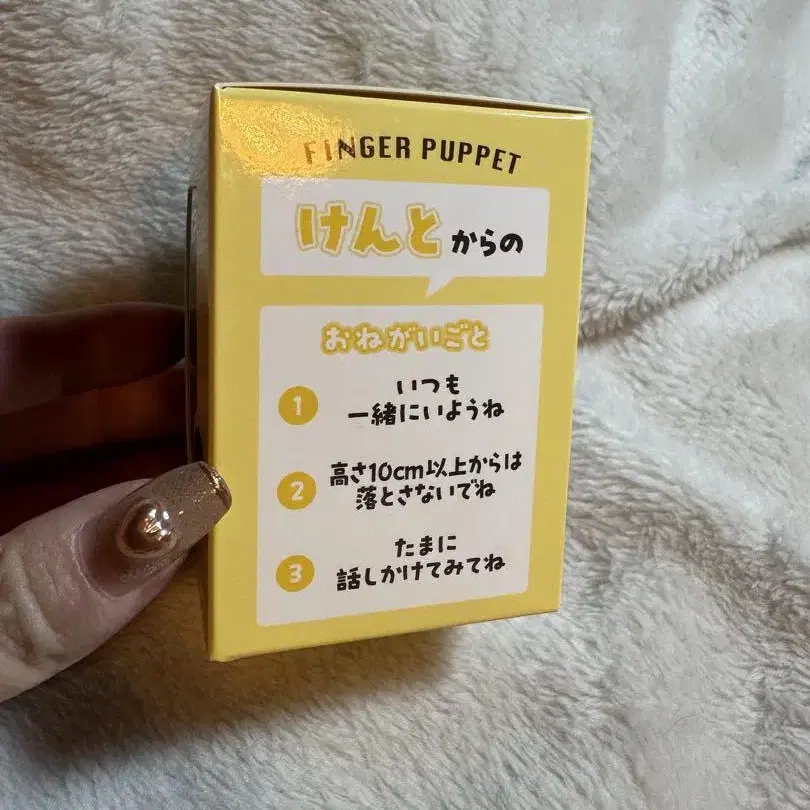 FINGER PUPPET
けんとからの
おねがいごと
1 いつも
一緒にいようね
2 高さ10cm以上からは
落とさないでね
3 たまに
話しかけてみてね